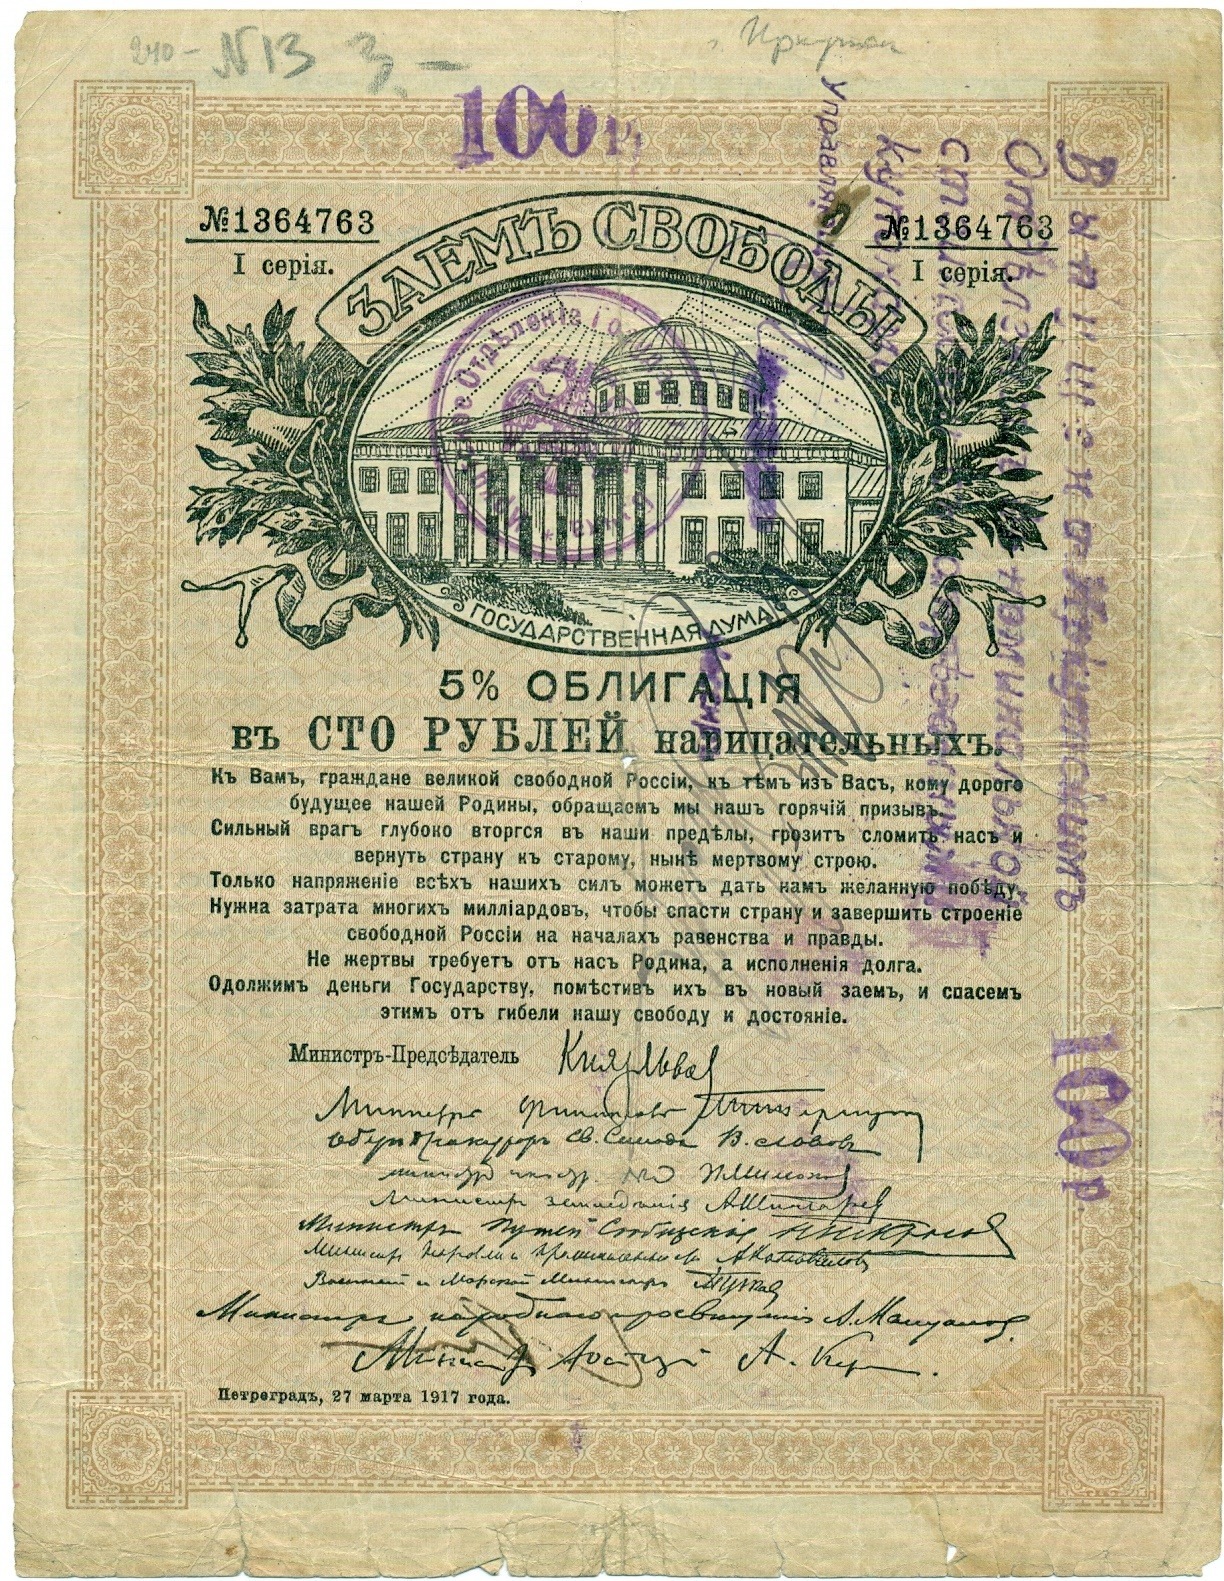 240- N 13 3.-
г. Иркутск
100 р.
№1364763
I серія.
№1364763
I серія.
ЗАЕМЪ СВОБОДЫ
ГОСУДАРСТВЕННАЯ ДУМА
5% ОБЛИГАЦІЯ
въ СТО РУБЛЕЙ нарицательныхъ.
Къ Вамъ, граждане великой свободной Россіи, къ тѣмъ изъ Васъ, кому дорого
будущее нашей Родины, обращаемъ мы нашъ горячій призывъ.
Сильный врагъ глубоко вторгся въ наши предѣлы, грозитъ сломить насъ и
вернуть страну къ старому, нынѣ мертвому строю.
Только напряженіе всѣхъ нашихъ силъ можетъ дать намъ желанную побѣду.
Нужна затрата многихъ милліардовъ, чтобы спасти страну и завершить строеніе
свободной Россіи на началахъ равенства и правды.
Не жертвы требуетъ отъ насъ Родина, а исполненія долга.
Одолжимъ деньги Государству, помѣстивъ ихъ въ новый заемъ, и спасемъ
этимъ отъ гибели нашу свободу и достояніе.
Министръ-Предсѣдатель Князь Львов
Министръ Финансовъ М. Терещенко
Оберъ Прокуроръ Св. Синода В. Львовъ
Министр иностр. дѣл П. Милюков
Министръ земледѣлія А. Шингарев
Министръ Путей Сообщенія Н. Некрасов
Министр торговли и промышленности А. Коновалов
Военный и Морской Министръ А. Гучков
Министръ народнаго просвѣщенія А. Мануилов.
Министр Юстиціи А. Керенский.
Петроградъ, 27 марта 1917 года.
Выпущено Иркутскимъ
Отдѣл
100 р.